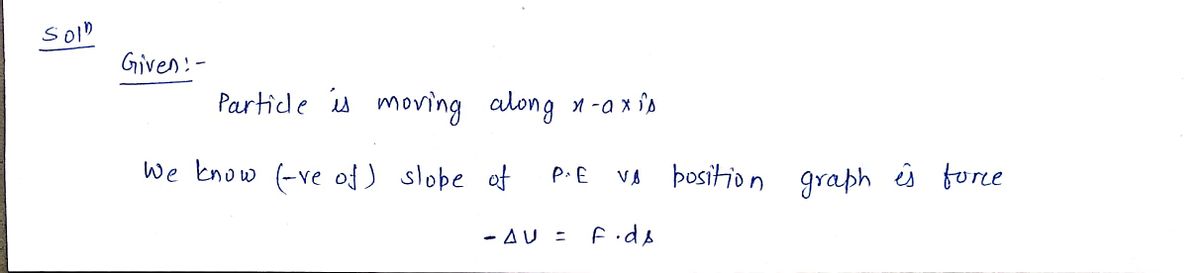 Solⁿ
Given:-
Particle is moving along x-axis
We know (-ve of) slope of P.E vs position graph is force
- ΔU = F.ds